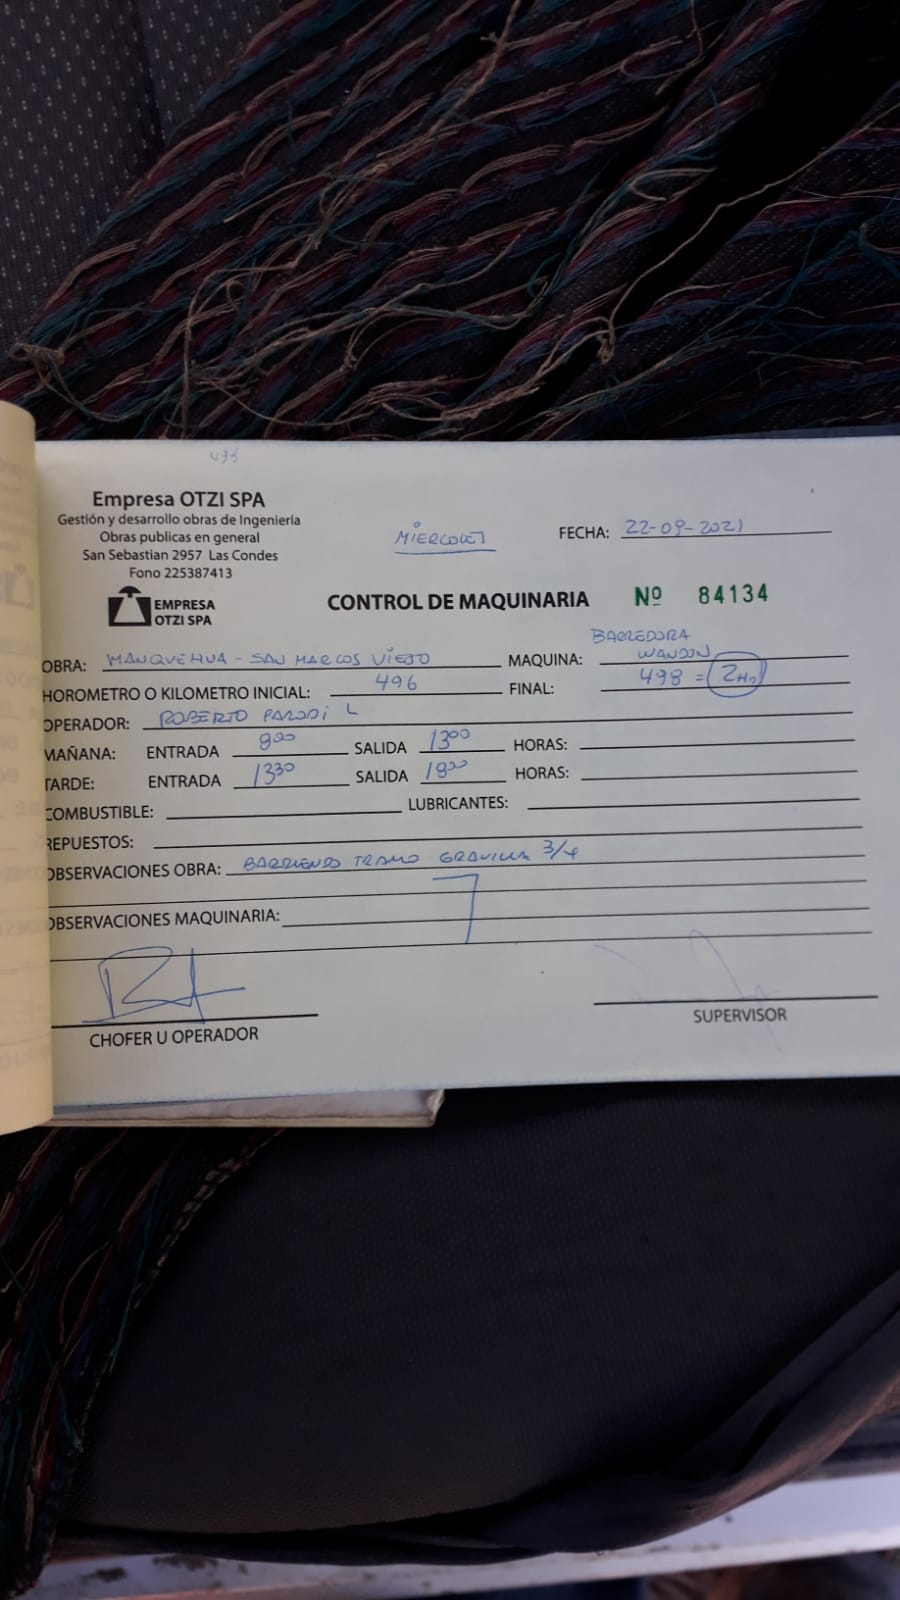 Empresa OTZI SPA
Gestión y desarrollo obras de Ingeniería
Obras publicas en general
San Sebastian 2957 Las Condes
Fono 225387413
EMPRESA
OTZI SPA
MIERCOLES
FECHA: 22-09-2021
CONTROL DE MAQUINARIA Nº 84134
OBRA: MANQUEHUA - SAN MARCOS VIEJO MAQUINA: BARREDORA
HOROMETRO O KILOMETRO INICIAL: 496 FINAL: 498 = 2Hrs
OPERADOR: ROBERTO PARODI L
MAÑANA: ENTRADA 8:00 SALIDA 13:00 HORAS:
TARDE: ENTRADA 13:30 SALIDA 18:00 HORAS:
COMBUSTIBLE: LUBRICANTES:
REPUESTOS:
OBSERVACIONES OBRA: BARRIENDO TRAMO GRAVILLA 3/4
OBSERVACIONES MAQUINARIA:
CHOFER U OPERADOR
SUPERVISOR